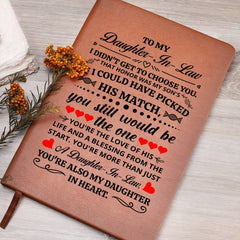 TO MY
Daughter-In-Law
I DIDN'T GET TO CHOOSE YOU.
THAT HONOR WAS MY SON'S
I COULD HAVE PICKED
HIS MATCH,
you still would be
the one
YOU'RE THE LOVE OF HIS
LIFE AND A BLESSING FROM THE
START. YOU'RE MORE THAN JUST
A Daughter-In-Law.
YOU'RE ALSO MY DAUGHTER
IN HEART.